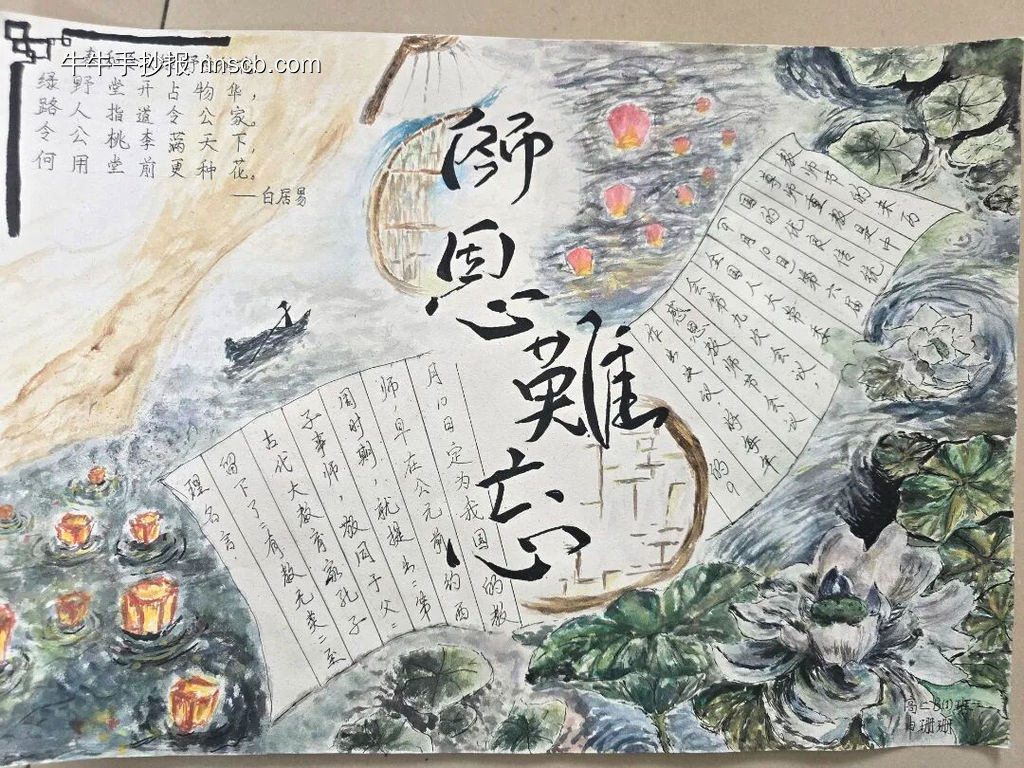 牛牛手抄报 nnscb.com
绿野堂开占物华，
路人指道令公家。
令公桃李满天下，
何用堂前更种花。
——白居易
師恩難忘
教师节的来历
尊师重教是中
国的优良传统
月10日第六届
全国人大常委
会第九次会议
感恩教师节会议
作出决议 将每年
的9
月10日定为我国的教
师，早在公元前约西
周时期，就提出："弟
子事师，敬同于父"
古代大教育家孔子
留下了"有教无类"至
理名言
高二B(1)班
珊珊